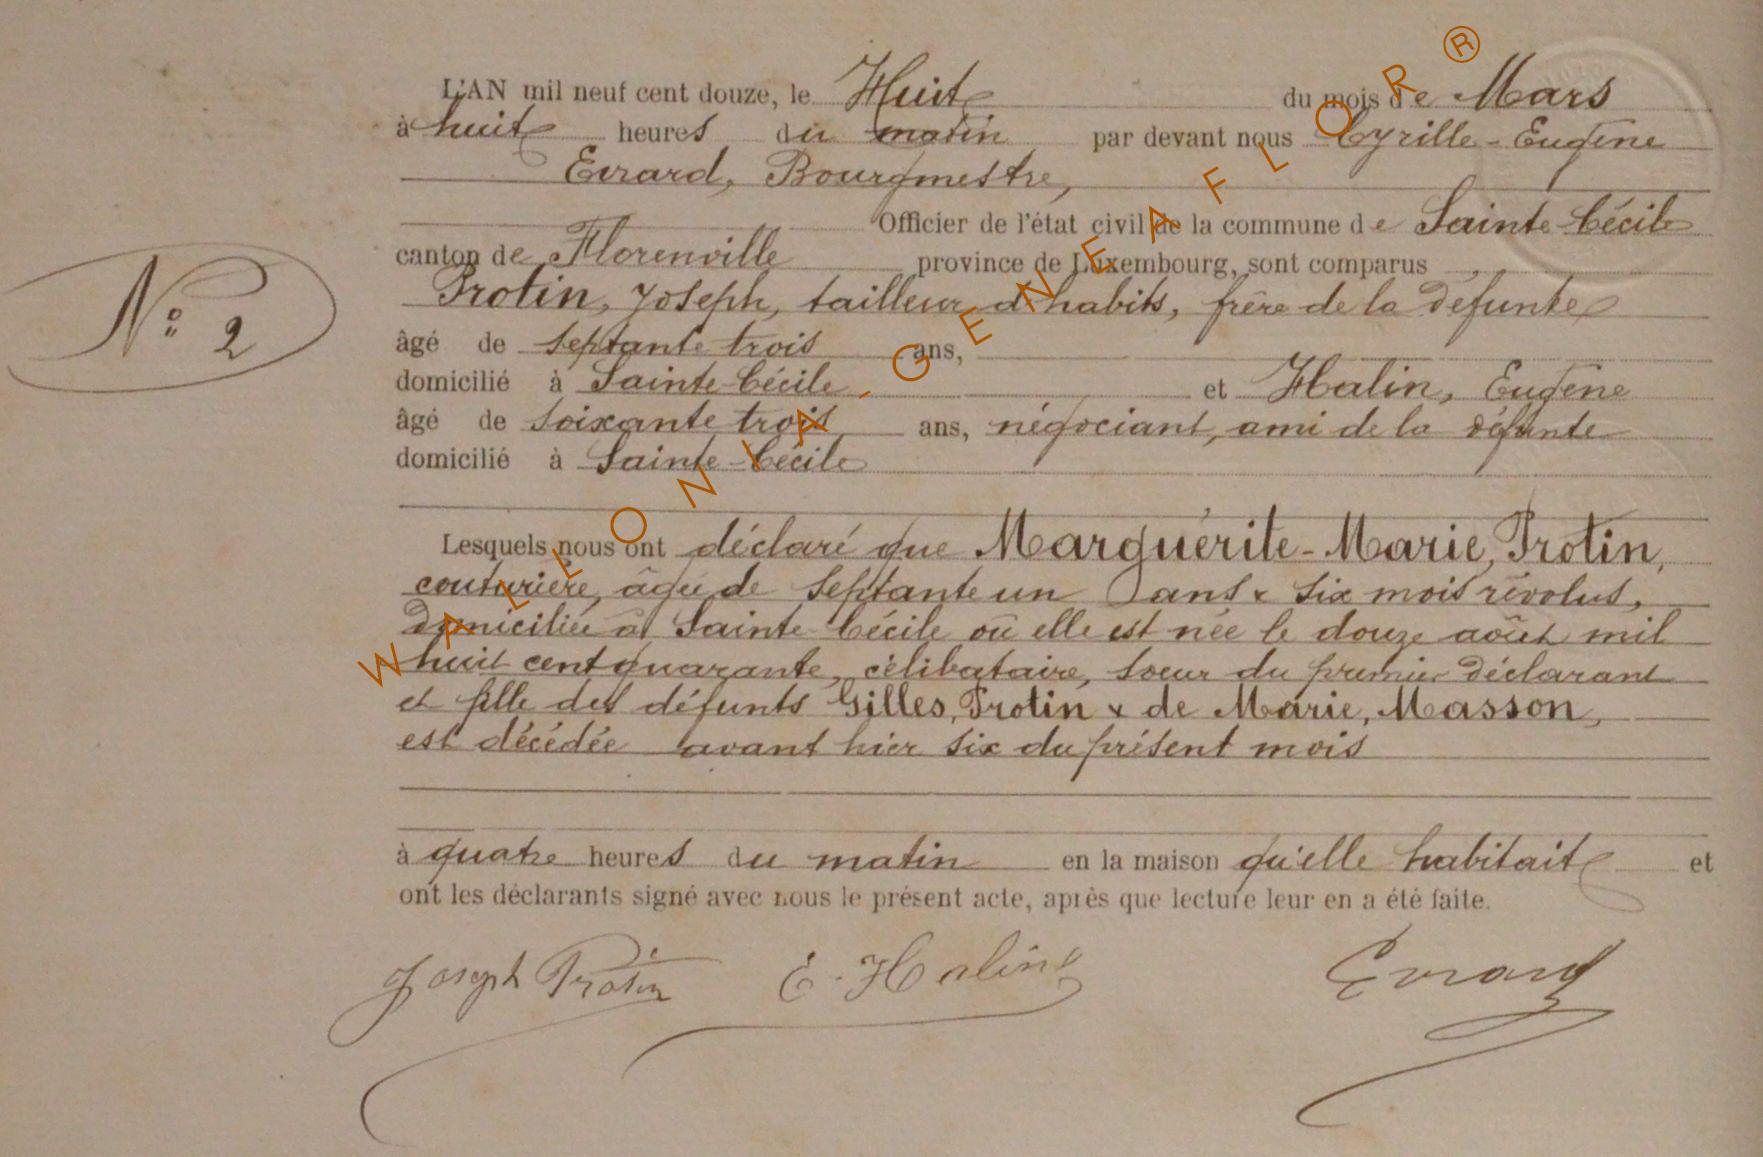 L'AN mil neuf cent douze, le Huit du mois de Mars
à huit heures du matin par devant nous Cyrille-Eugène
Evrard, Bourgmestre,
Officier de l'état civil de la commune de Sainte-Cécile
canton de Florenville province de Luxembourg, sont comparus
Protin, Joseph, tailleur d'habits, frère de la défunte
âgé de septante trois ans,
domicilié à Sainte-Cécile et Halin, Eugène
âgé de soixante trois ans, négociant, ami de la défunte
domicilié à Sainte-Cécile
N° 2
Lesquels nous ont déclaré que Marguérite-Marie, Protin,
couturière, âgée de septante un ans & six mois révolus,
domiciliée à Sainte-Cécile où elle est née le douze août mil
huit cent quarante, célibataire, soeur du premier déclarant
et fille des défunts Gilles, Protin & de Marie, Masson,
est décédée avant hier six du présent mois
à quatre heures du matin en la maison qu'elle habitait et
ont les déclarants signé avec nous le présent acte, après que lecture leur en a été faite.
Joseph Protin E. Halin Evrard
WALLONIA-GENEAFLOR®